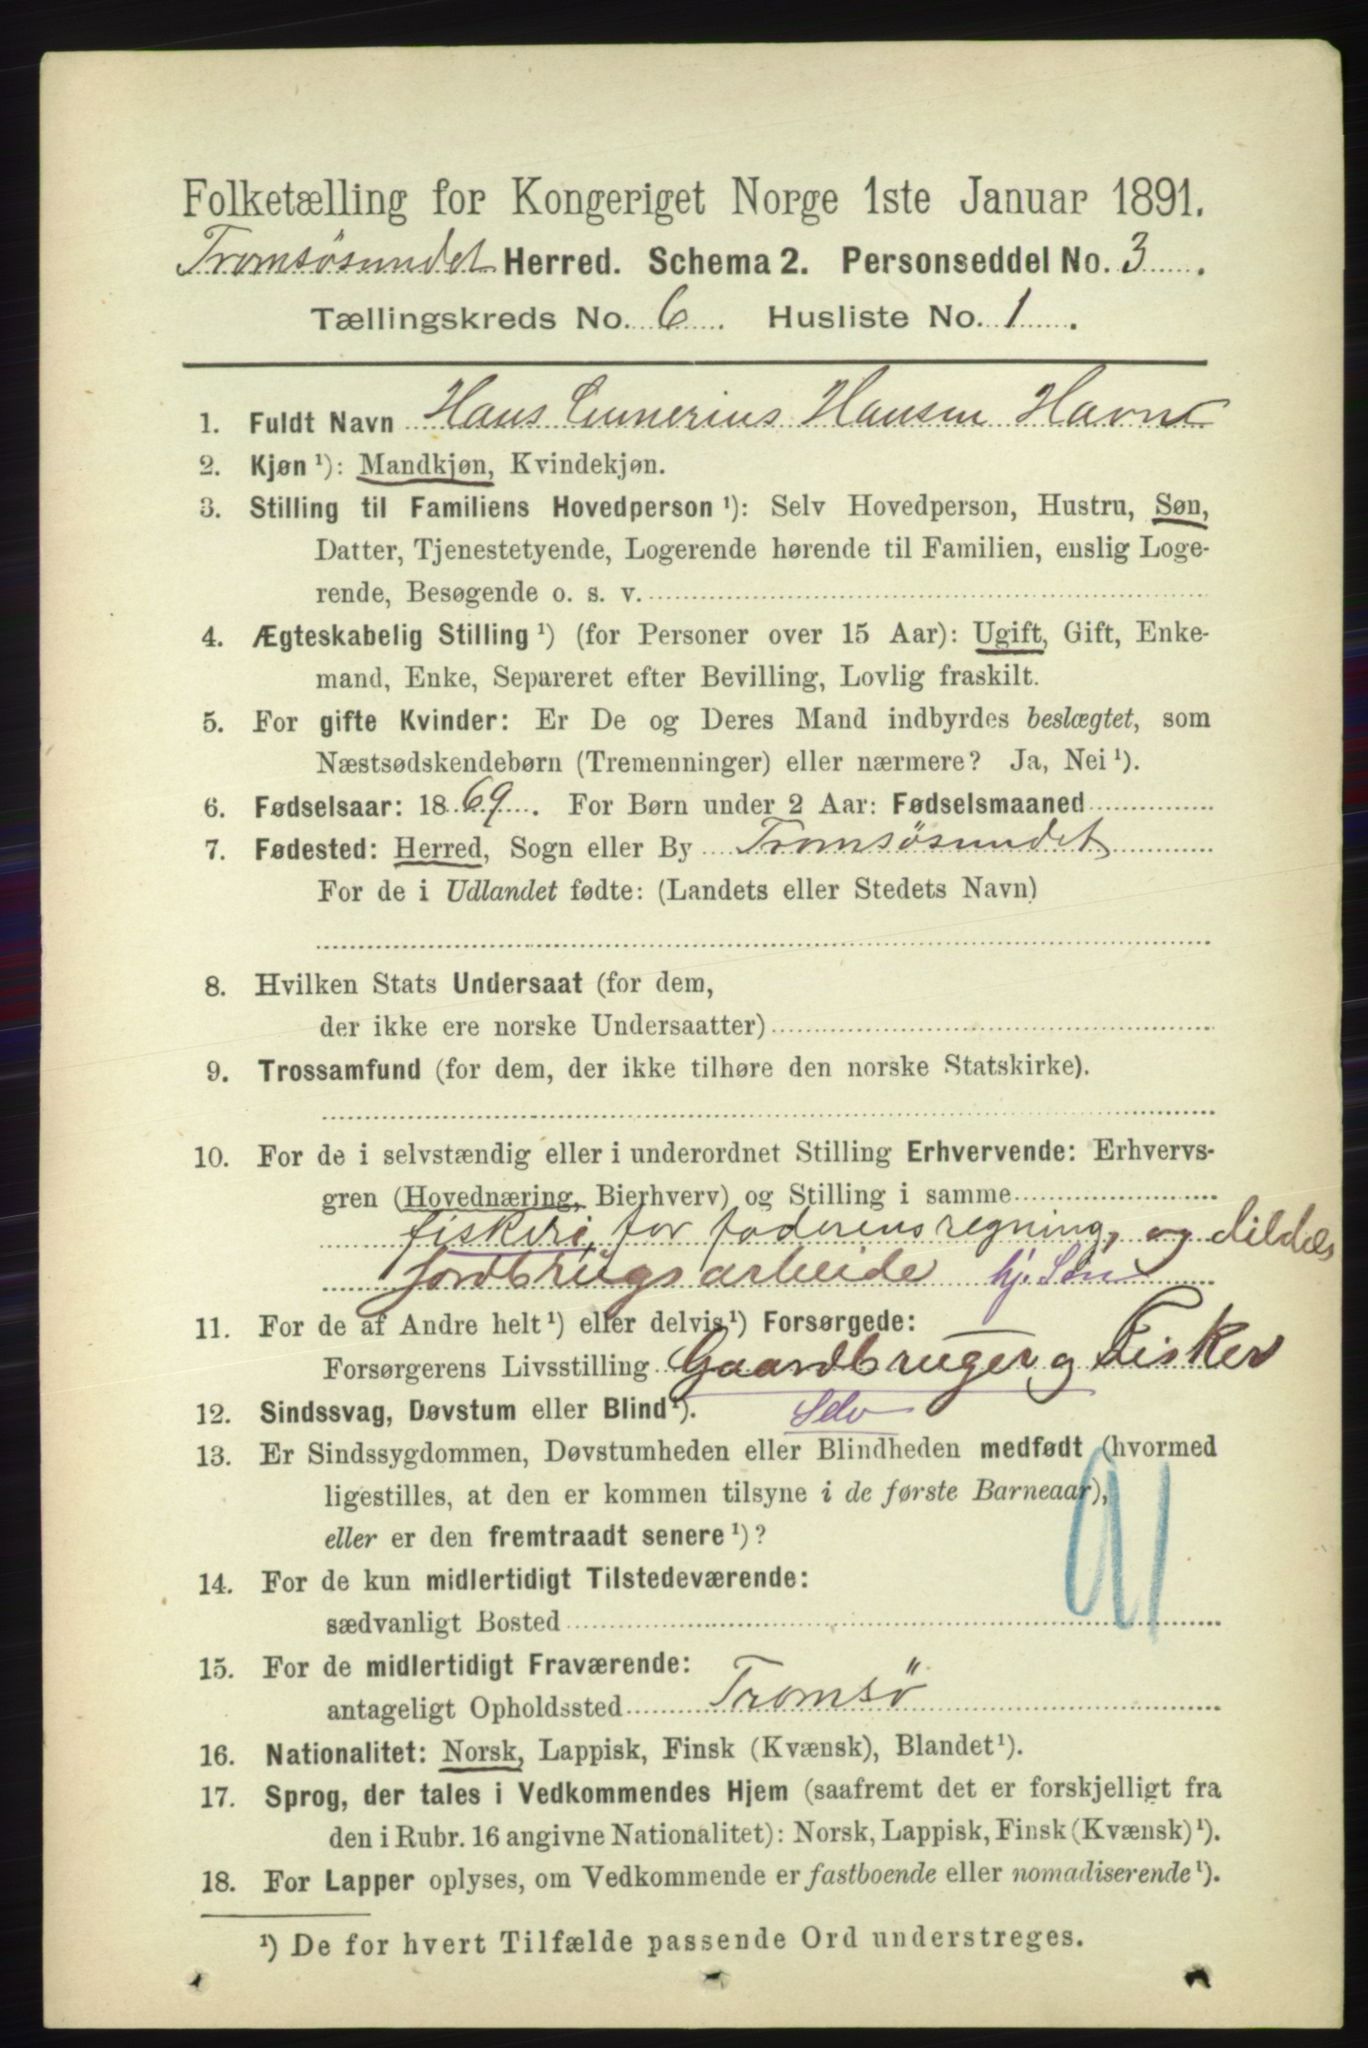 Folketælling for Kongeriget Norge 1ste Januar 1891.
Tromsøsundet Herred. Schema 2. Personseddel No. 3.
Tællingskreds No. 6. Husliste No. 1.
1. Fuldt Navn Hans Hansen Havn
2. Kjøn ¹): Mandkjøn, Kvindekjøn.
3. Stilling til Familiens Hovedperson ¹): Selv Hovedperson, Hustru, Søn,
Datter, Tjenestetyende, Logerende hørende til Familien, enslig Loge-
rende, Besøgende o. s. v.
4. Ægteskabelig Stilling ¹) (for Personer over 15 Aar): Ugift, Gift, Enke-
mand, Enke, Separeret efter Bevilling, Lovlig fraskilt.
5. For gifte Kvinder: Er De og Deres Mand indbyrdes beslægtet, som
Næstsødskendebørn (Tremenninger) eller nærmere? Ja, Nei ¹).
6. Fødselsaar: 1869. For Børn under 2 Aar: Fødselsmaaned
7. Fødested: Herred, Sogn eller By Tromsøsundet
For de i Udlandet fødte: (Landets eller Stedets Navn)
8. Hvilken Stats Undersaat (for dem,
der ikke ere norske Undersaatter)
9. Trossamfund (for dem, der ikke tilhøre den norske Statskirke).
10. For de i selvstændig eller i underordnet Stilling Erhvervende: Erhvervs-
gren (Hovednæring, Bierhverv) og Stilling i samme
fiskeri, for faderens regning, og dildels
jordbrugsarbeide hj. Søn
11. For de af Andre helt ¹) eller delvis ¹) Forsørgede:
Forsørgerens Livsstilling Gaardbruger og Fisker
12. Sindssvag, Døvstum eller Blind ¹). Selv
13. Er Sindssygdommen, Døvstumheden eller Blindheden medfødt (hvormed
ligestilles, at den er kommen tilsyne i de første Barneaar),
eller er den fremtraadt senere ¹)?
91
14. For de kun midlertidigt Tilstedeværende:
sædvanligt Bosted
15. For de midlertidigt Fraværende:
antageligt Opholdssted Tromsö
16. Nationalitet: Norsk, Lappisk, Finsk (Kvænsk), Blandet ¹).
17. Sprog, der tales i Vedkommendes Hjem (saafremt det er forskjelligt fra
den i Rubr. 16 angivne Nationalitet): Norsk, Lappisk, Finsk (Kvænsk) ¹).
18. For Lapper oplyses, om Vedkommende er fastboende eller nomadiserende ¹).
¹) De for hvert Tilfælde passende Ord understreges.